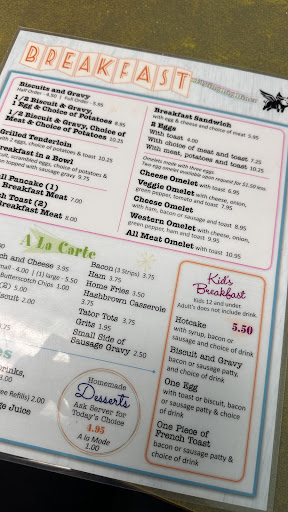 BREAKFAST
Biscuits and Gravy
Half Order - 4.50 | Full Order - 5.95
1/2 Biscuit & Gravy,
1 Egg & Choice of Potatoes 8.95
1/2 Biscuit & Gravy, Choice of
Meat & Choice of Potatoes
Grilled Tenderloin
2 eggs, choice of potatoes & toast 10.25
Breakfast in a Bowl
scrambled eggs, choice of potatoes &
topped with sausage gravy 9.75
Pancake (1)
Breakfast Meat 7.00
Toast (2)
Breakfast Meat 8.00
Breakfast Sandwich
with egg & cheese and choice of meat 5.95
2 Eggs
With toast 4.00
With choice of meat and toast 7.25
With meat, potatoes and toast 10.25
Omelets made with three eggs.
Cheese Omelet with toast 6.95
Veggie Omelet with cheese, onion,
green pepper, tomato and toast 7.95
Cheese Omelet
with ham, bacon or sausage and toast 8.95
Western Omelet with cheese, onion,
green pepper, ham and toast 9.95
All Meat Omelet with toast 10.95
A La Carte
and Cheese 3.95
small - 4.00 | (1) large - 5.50
Butterscotch Chips 1.00
(2) 5.00
Biscuit 2.00
Bacon (3 Strips) 3.75
Ham 3.75
Home Fries 3.50
Hashbrown Casserole
3.75
Tator Tots 3.75
Grits 1.95
Small Side of
Sausage Gravy 2.50
Kid's
Breakfast
Kids 12 and under.
Adult's does not include drink.
5.50
Hotcake
with syrup, bacon or
sausage and choice of drink
Biscuit and Gravy
bacon or sausage patty,
and choice of drink
One Egg
with toast or biscuit, bacon
or sausage patty & choice
of drink
One Piece of
French Toast
bacon or sausage patty &
choice of drink
Drinks,
Refills) 2.00
Juice
Homemade
Desserts
Ask Server for
Today's Choice
4.95
A la Mode
1.00